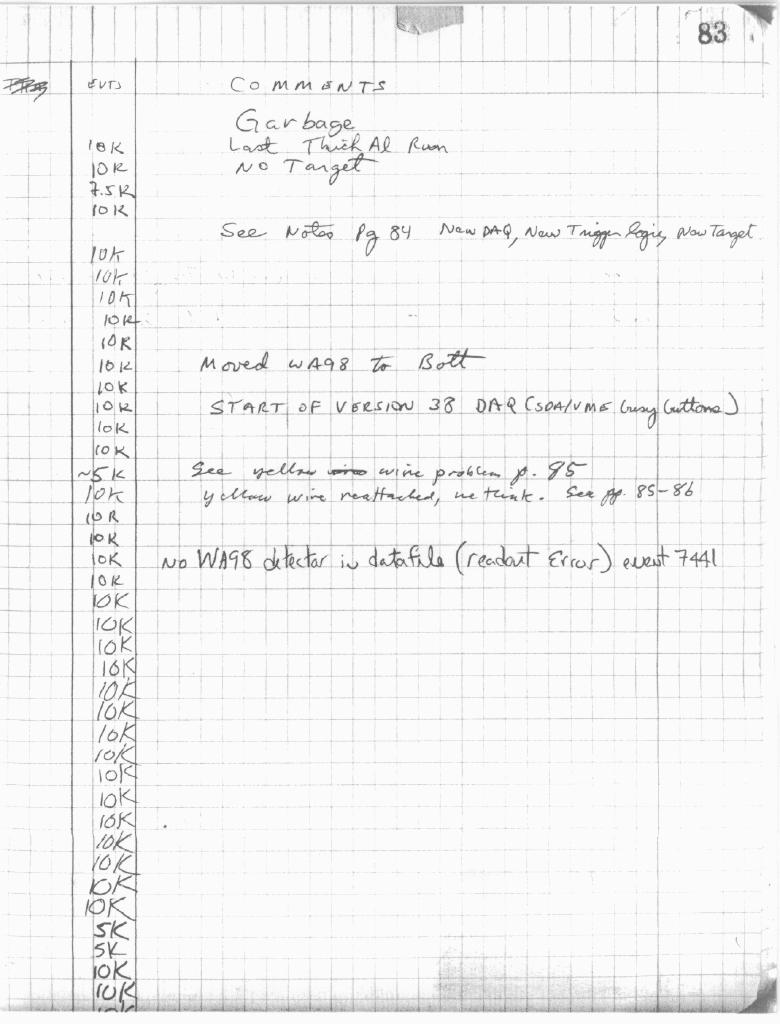 83
EVTS COMMENTS
Garbage
10K Last Thick Al Run
10K No Target
7.5K
10K
See Notes Pg 84 New DAQ, New Trigger logic, New Target
10K
10K
10K
10K
10K
10K Moved WA98 to Bott
10K
10K START OF VERSION 38 DAQ (SDA/VME busy buttons)
10K
10K
~5K See yellow wire problem p. 85
10K yellow wire reattached, we think. See pp. 85-86
10K
10K
10K No WA98 detector in datafile (readout Error) event 7441
10K
10K
10K
10K
10K
10K
10K
10K
10K
10K
10K
10K
10K
10K
10K
10K
5K
5K
10K
10K